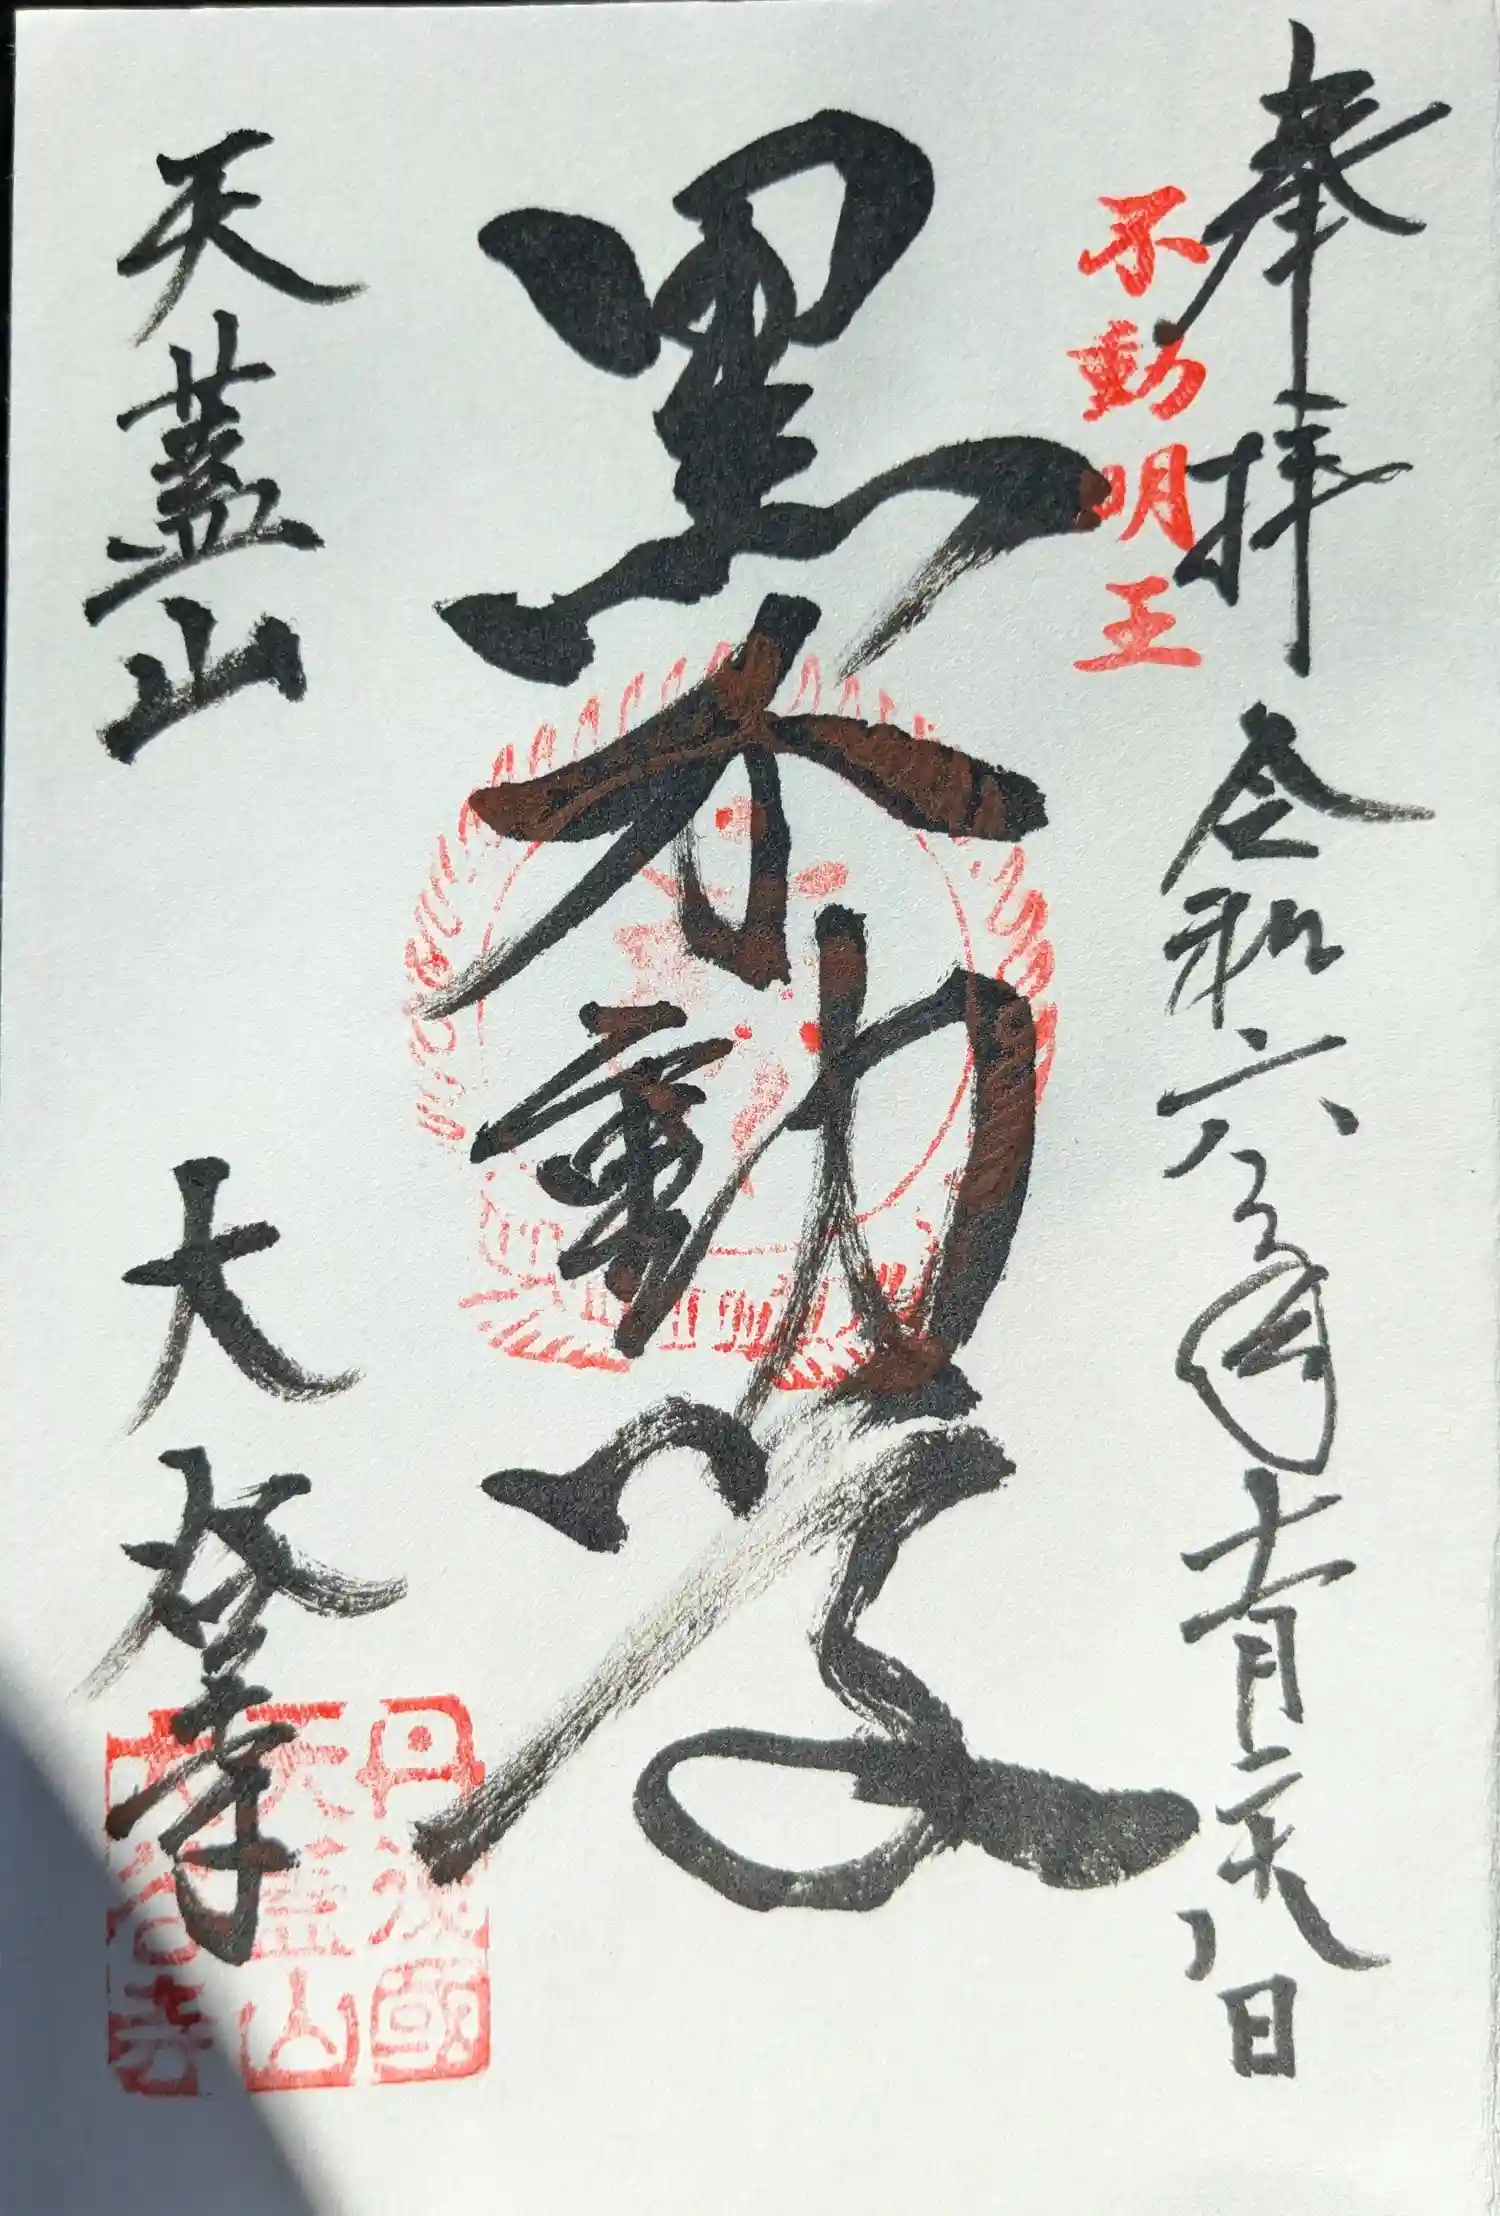 奉拝 令和六年十一月二十八日
不動明王
黒不動
天蓋山 大寺
丹波國
天蓋山